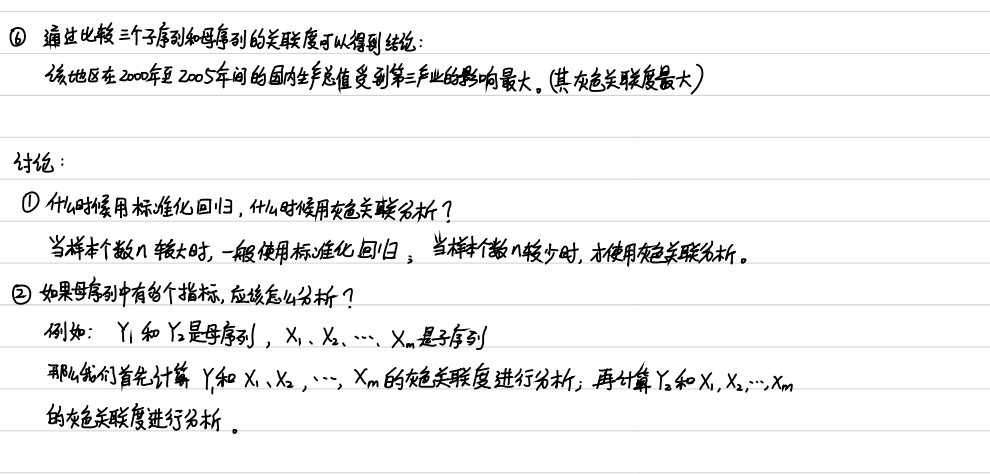 ⑥ 通过比较三个子序列和母序列的关联度可以得到结论:
该地区在2000年至2005年间的国内生产总值受到第三产业的影响最大。(其灰色关联度最大)
讨论:
① 什么时候用标准化回归,什么时候用灰色关联分析?
当样本个数n较大时,一般使用标准化回归;当样本个数n较少时,才使用灰色关联分析。
② 如果母序列中有多个指标,应该怎么分析?
例如: Y₁和Y₂是母序列, X₁、X₂、…、Xₘ是子序列
那么我们首先计算Y₁和X₁、X₂,…,Xₘ的灰色关联度进行分析;再计算Y₂和X₁,X₂,…,Xₘ
的灰色关联度进行分析。